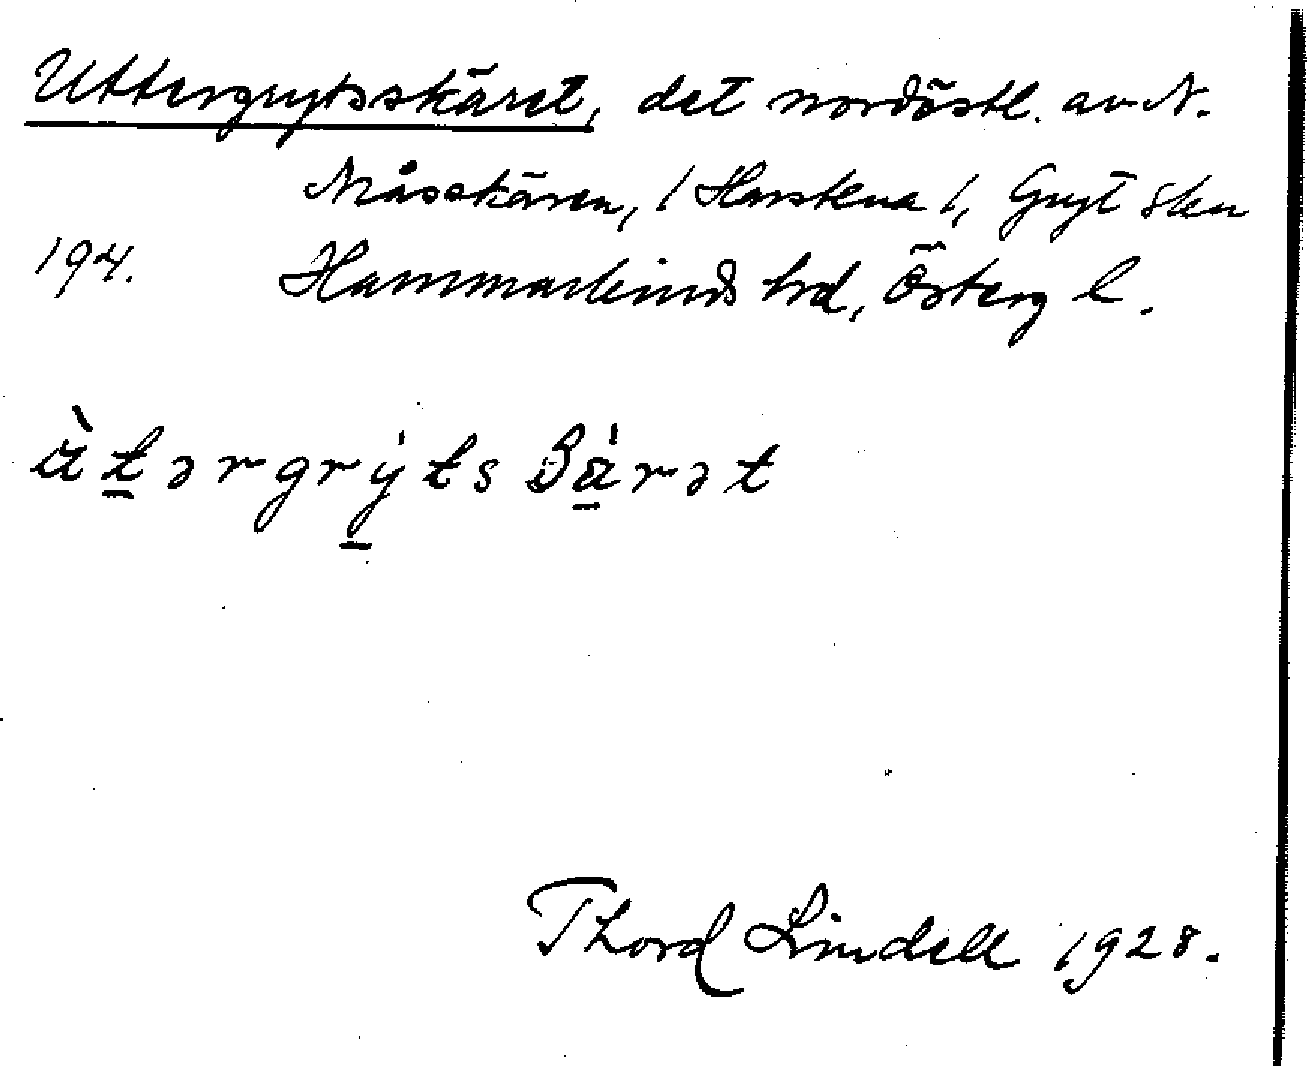 Uttergrytsskäret, det nordöstl. av N.
Måsskären, / Harstena /, Gryt skn
194. Hammarkinds hrd, Österg l.
ùtərgrýtsʃä́rət
Thord Lindell 1928.